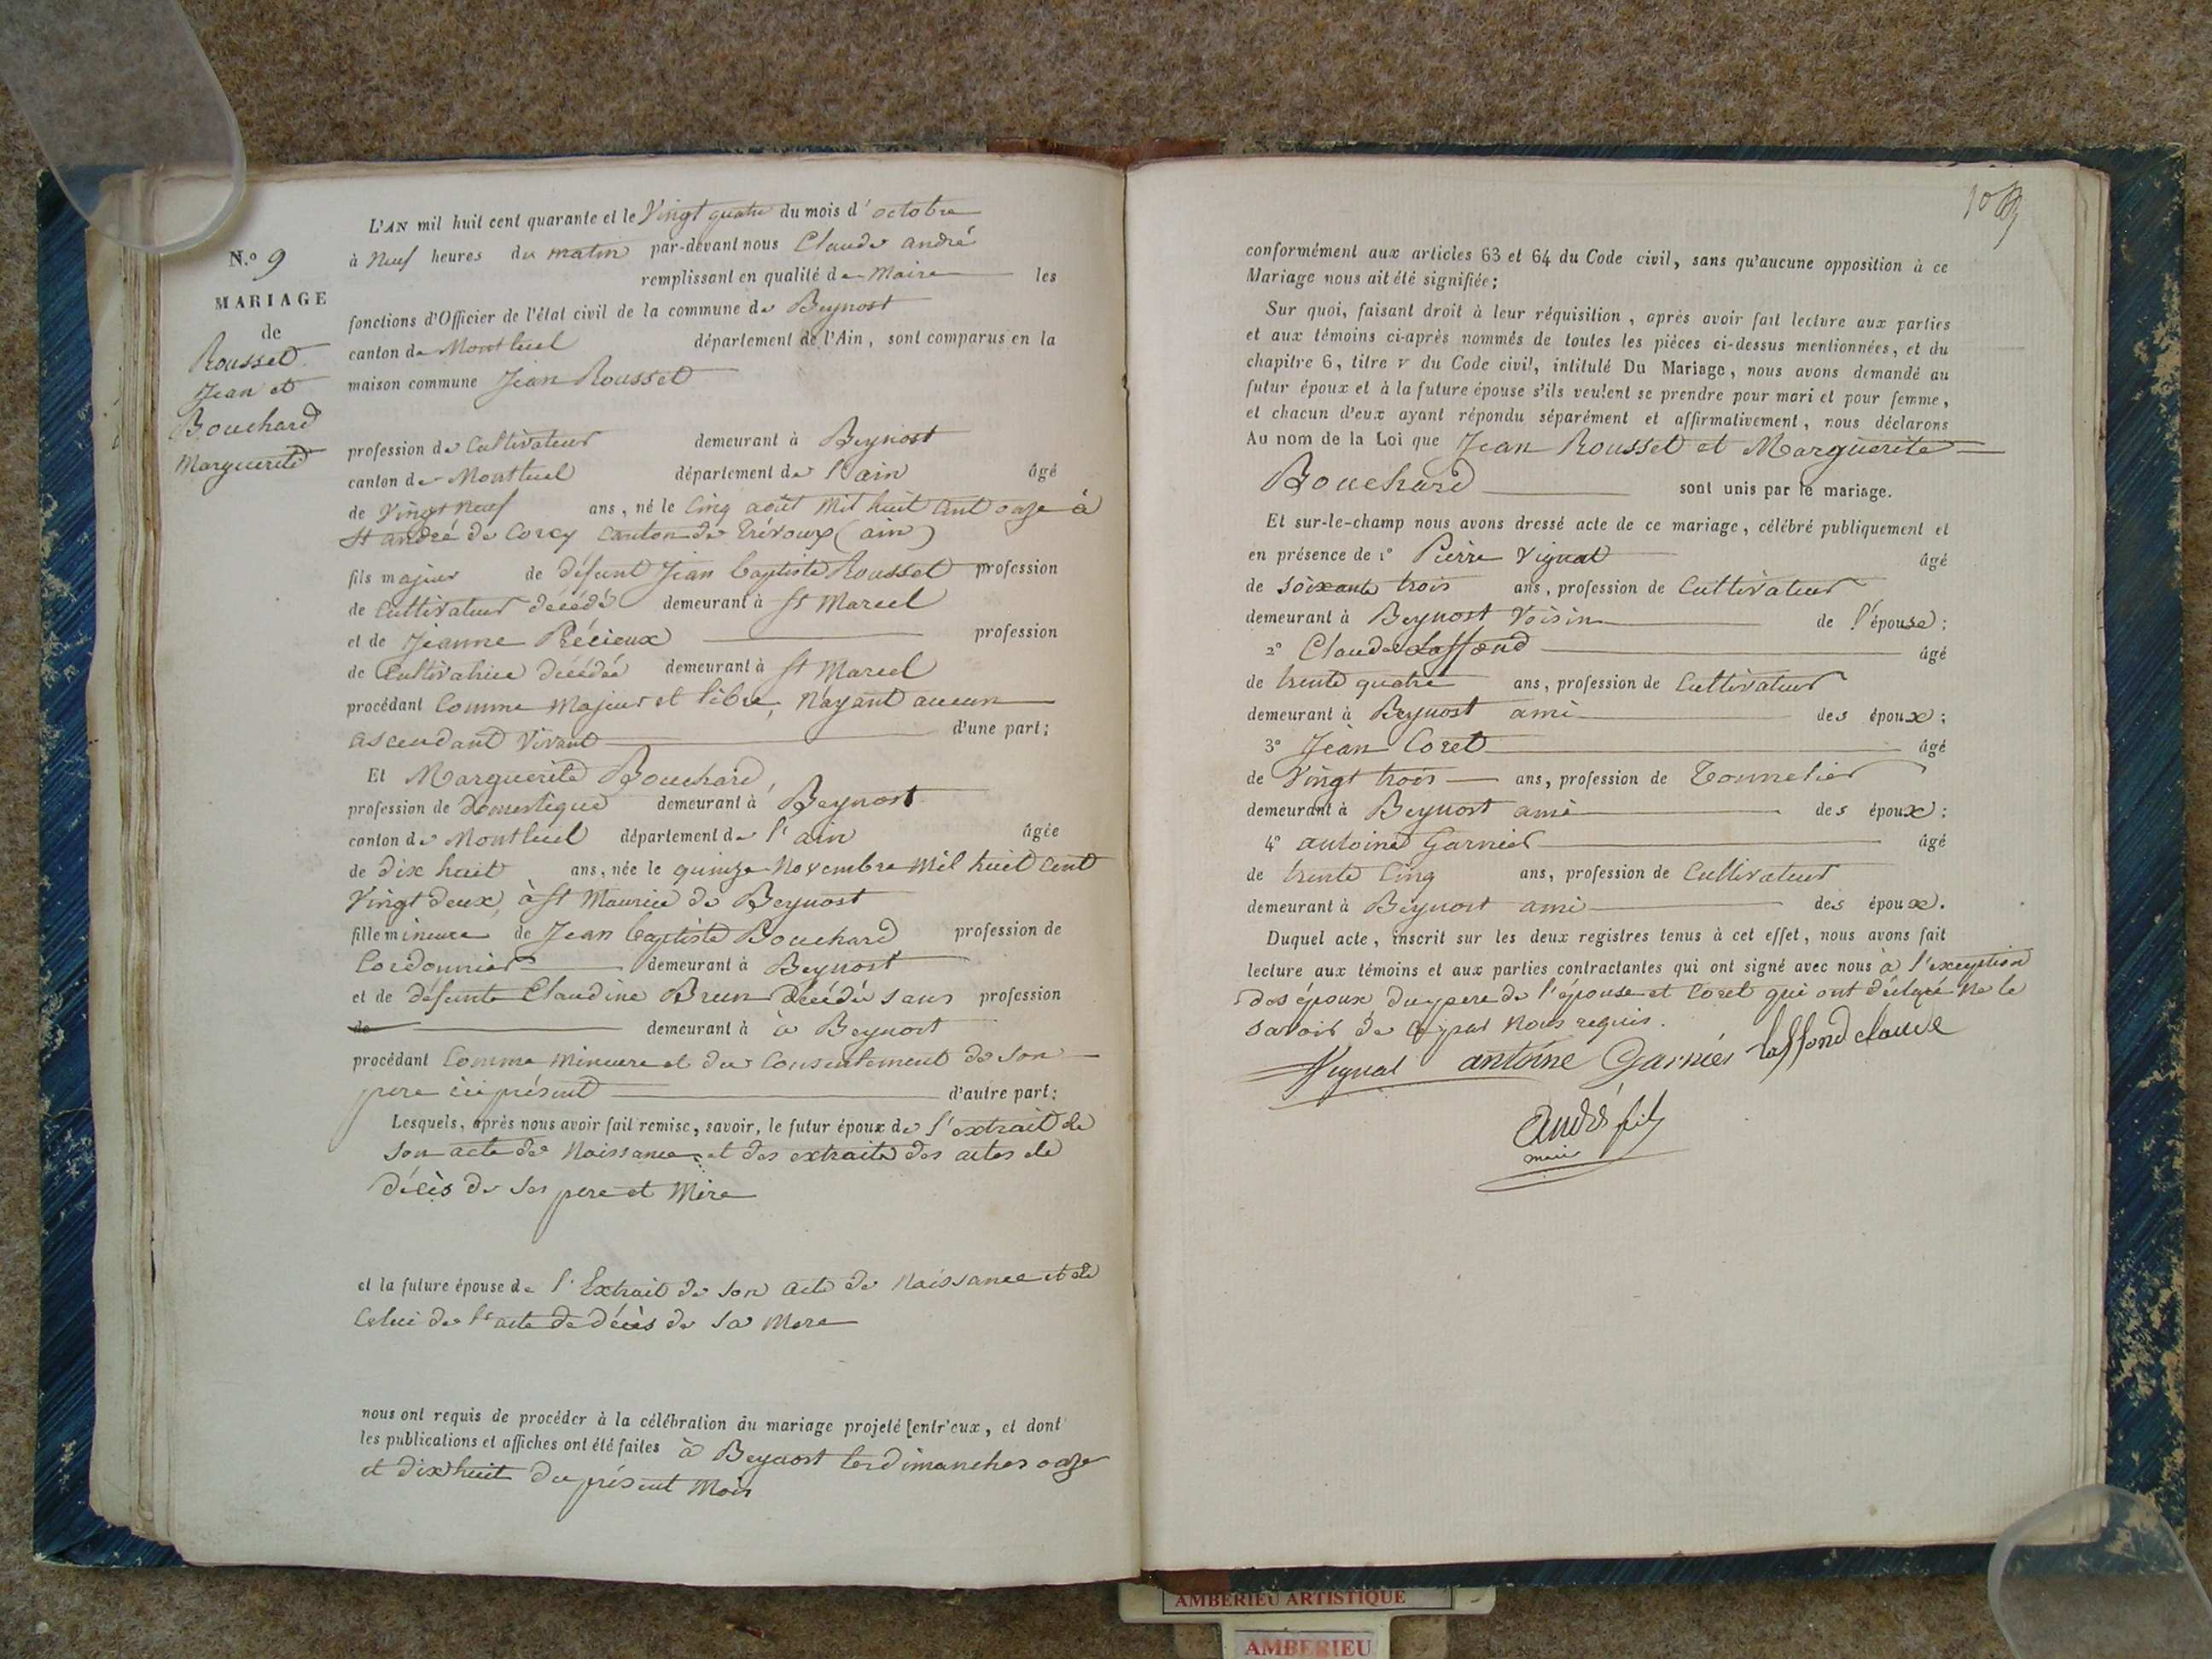 N.º 9
MARIAGE
de
Rousset
Jean et
Bouchard
Marguerite
L'AN mil huit cent quarante et le Vingt quatre du mois d'octobre
à Neuf heures du matin par-devant nous Claude andré
remplissant en qualité de Maire les
fonctions d'Officier de l'état civil de la commune de Beynost
canton de Montluel département de l'Ain, sont comparus en la
maison commune Jean Rousset
profession de Cultivateur demeurant à Beynost
canton de Montluel département de l'ain âgé
de Vingt neuf ans, né le Cinq août Mil huit cent onze à
St andré de Corcy Canton de Trévoux (ain)
fils majeur de défunt Jean baptiste Rousset profession
de Cultivateur décédé demeurant à St Marcel
et de Jeanne Précieux profession
de Cultivatrice décédée demeurant à St Marcel
procédant Comme Majeur et libre, N'ayant aucun
ascendant Vivant d'une part;
Et Marguerite Bouchard,
profession de Domestique demeurant à Beynost
canton de Montluel département de l'ain âgée
de dix huit ans, née le quinze Novembre Mil huit Cent
Vingt deux, à St Maurice de Beynost
fille mineure de Jean baptiste Bouchard profession de
Cordonnier demeurant à Beynost
et de défunte Claudine Brun Décédée sans profession
de demeurant à à Beynost
procédant Comme Mineure et du Consentement de son
pere ici présent d'autre part;
Lesquels, après nous avoir fait remise, savoir, le futur époux de l'extrait de
son acte de Naissance et des extraits des actes de
décès de ses pere et Mère
et la future épouse de l'Extrait de son acte de Naissance et de
Celui de l'acte de décès de sa Mere
nous ont requis de procéder à la célébration du mariage projeté entr'eux, et dont
les publications et affiches ont été faites à Beynost les dimanches onze
et dix huit du présent Mois
conformément aux articles 63 et 64 du Code civil, sans qu'aucune opposition à ce
Mariage nous ait été signifiée;
Sur quoi, faisant droit à leur réquisition, après avoir fait lecture aux parties
et aux témoins ci-après nommés de toutes les pièces ci-dessus mentionnées, et du
chapitre 6, titre v du Code civil, intitulé Du Mariage, nous avons demandé au
futur époux et à la future épouse s'ils veulent se prendre pour mari et pour femme,
et chacun d'eux ayant répondu séparément et affirmativement, nous déclarons
Au nom de la Loi que Jean Rousset et Marguerite
Bouchard sont unis par le mariage.
Et sur-le-champ nous avons dressé acte de ce mariage, célébré publiquement et
en présence de 1º Pierre Vignat âgé
de soixante trois ans, profession de Cultivateur
demeurant à Beynost Voisin de l'épouse;
2º Claude Laffond âgé
de trente quatre ans, profession de Cultivateur
demeurant à Beynost ami des époux;
3º Jean Coret âgé
de Vingt trois ans, profession de Tonnelier
demeurant à Beynost ami des époux;
4º antoine Garnier âgé
de trente Cinq ans, profession de Cultivateur
demeurant à Beynost ami des époux.
Duquel acte, inscrit sur les deux registres tenus à cet effet, nous avons fait
lecture aux témoins et aux parties contractantes qui ont signé avec nous à l'exception
des époux du pere de l'épouse et Coret qui ont déclaré ne le
savoir de ce par Nous requis.
Vignat antoine Garnier laffond claude
André fils
maire
AMBERIEU ARTISTIQUE
AMBERIEU